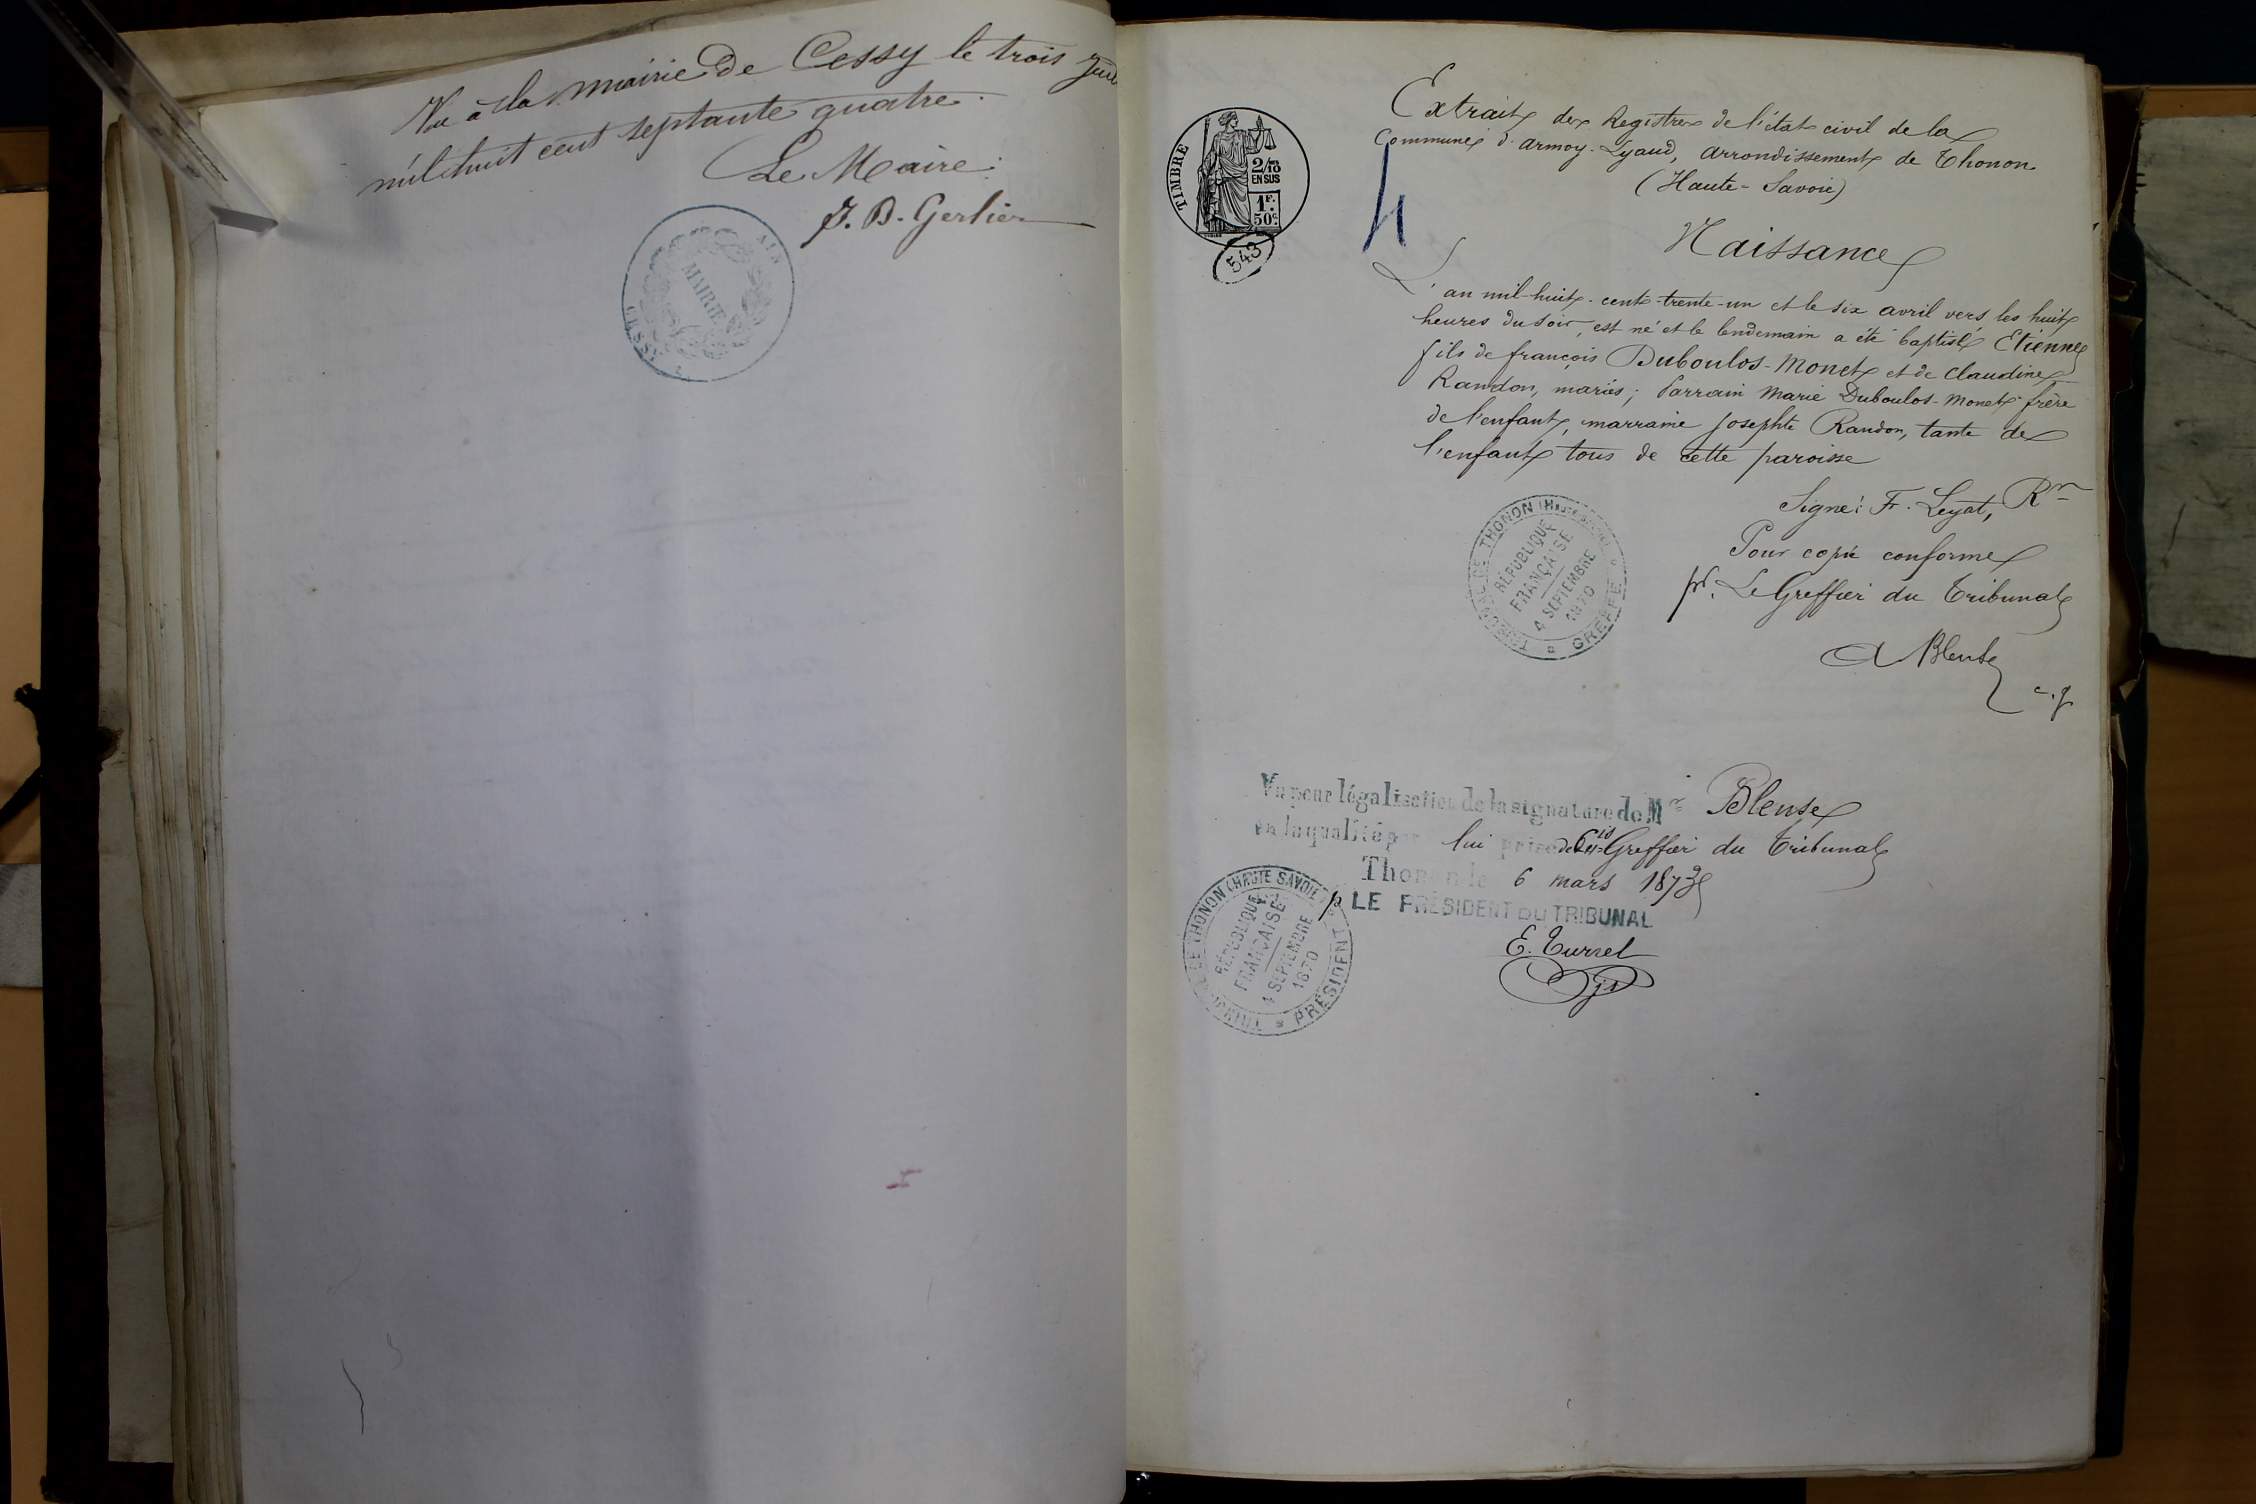 Vu à la mairie de Cessy le trois
mil huit cent septante quatre.
Le Maire:
J. B. Gerlier
MAIRIE
CESSY
AIN
TIMBRE
2/10
EN SUS
1F.
50c.
543
4
Extrait des Registres de l'état civil de la
Commune d'Armoy-Lyaud, arrondissement de Thonon
(Haute-Savoie)
Naissance
L'an mil-huit-cent-trente-un et le six avril vers les huit
heures du soir, est né et le lendemain a été baptisé Etienne
fils de françois Duboulos-Monet et de Claudine
Randon, mariés; Parrain Marie Duboulos-Monet frère
de l'enfant, marraine Josephte Randon, tante de
l'enfant tous de cette paroisse
Signé: F. Leyat, Rr
Pour copie conforme
pr. Le Greffier du Tribunal
A Blense
c. g
TRIBUNAL DE THONON (HAUTE SAVOIE)
RÉPUBLIQUE
FRANÇAISE
4 SEPTEMBRE
1870
GREFFE
Vu pour légalisation de la signature de Mr Blense
en la qualité par lui prise de Cis Greffier du Tribunal
Thonon le 6 mars 1873
p LE PRÉSIDENT DU TRIBUNAL
E. Turrel
TRIBUNAL DE THONON (HAUTE SAVOIE)
RÉPUBLIQUE
FRANÇAISE
4 SEPTEMBRE
1870
PRÉSIDENT